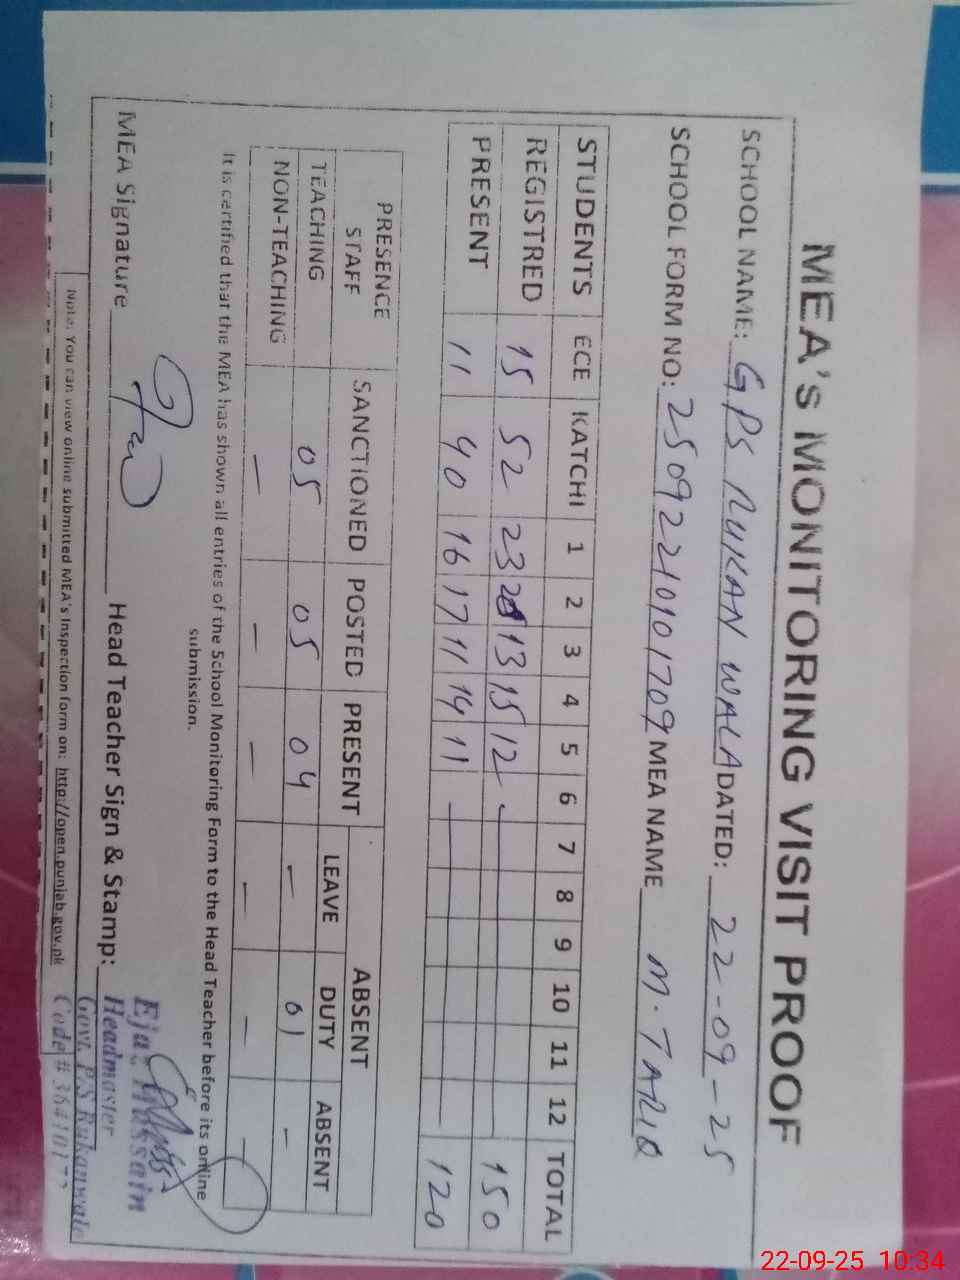 MEA's MONITORING VISIT PROOF
SCHOOL NAME: GPS RUKAN WALA DATED: 22-09-25
SCHOOL FORM NO: 25092210101709 MEA NAME M. TARIQ
STUDENTS ECE KATCHI 1 2 3 4 5 6 7 8 9 10 11 12 TOTAL
REGISTRED 15 52 23 20 13 15 12 - 150
PRESENT 11 40 16 17 11 14 11 120
PRESENCE STAFF SANCTIONED POSTED PRESENT ABSENT
LEAVE DUTY ABSENT
TEACHING 05 05 04 - 01 -
NON-TEACHING - - - - - -
It is certified that the MEA has shown all entries of the School Monitoring Form to the Head Teacher before its online
submission.
MEA Signature Head Teacher Sign & Stamp:
Hussain
Headmaster
Govt. P/S Rukanwala
Code #
Note: You can view online submitted MEA's Inspection form on: http://open.punjab.gov.pk
22-09-25 10:34